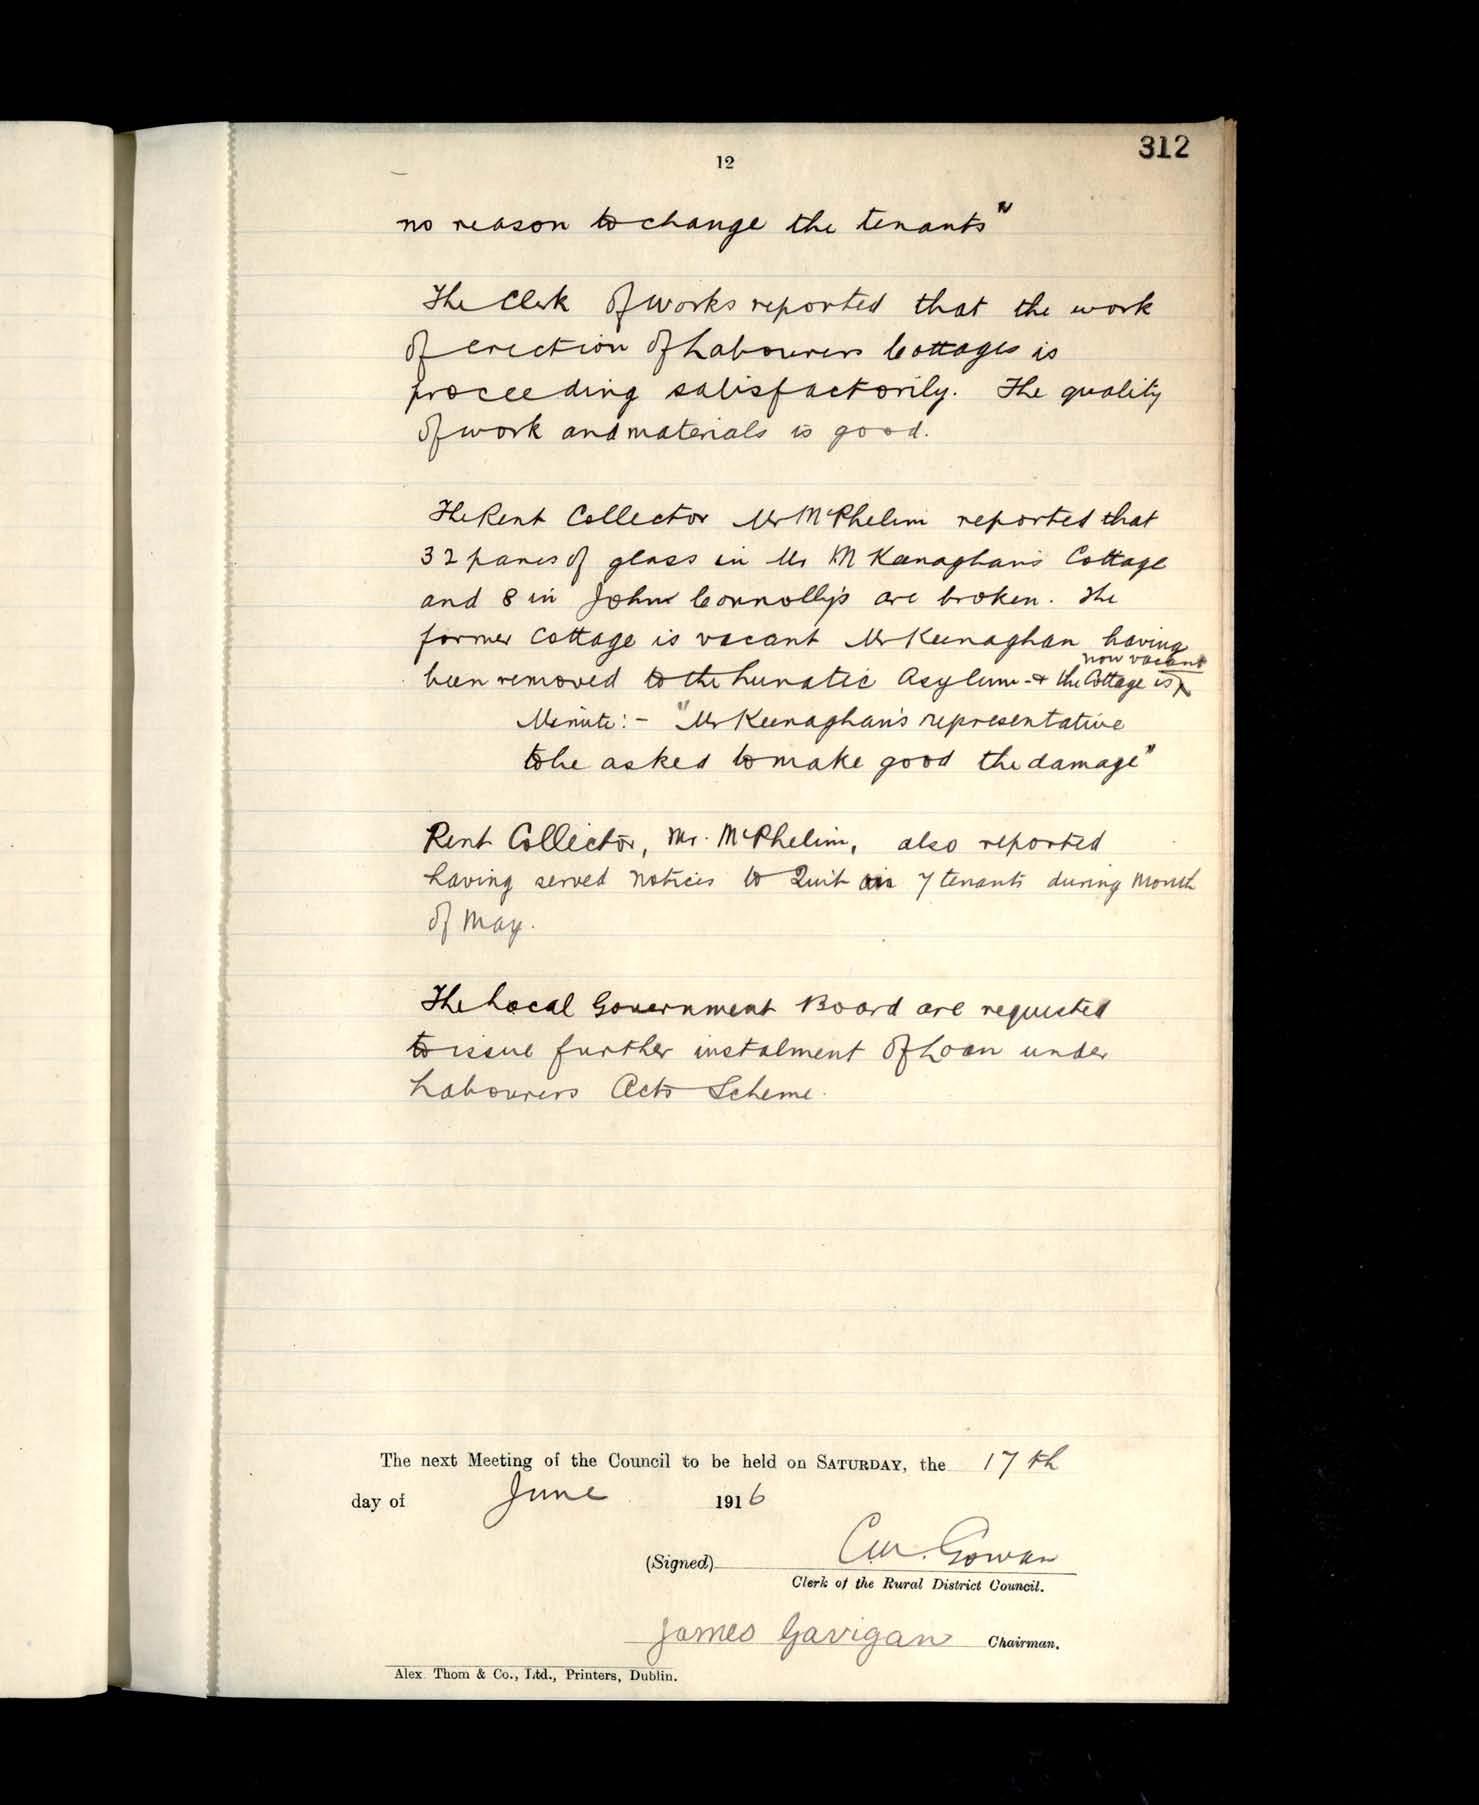 312
12
no reason to change the tenants"
The Clerk of Works reported that the work
of erection of Labourers Cottages is
proceeding satisfactorily. The quality
of work and materials is good.
The Rent Collector Mr McPhelim reported that
32 panes of glass in Mr M Keenaghan's Cottage
and 8 in John Connolly's are broken. The
former Cottage is vacant Mr Keenaghan having
been removed to the Lunatic Asylum - & the Cottage is now vacant
Minute: - "Mr Keenaghan's representative
to be asked to make good the damage"
Rent Collector, Mr. McPhelim, also reported
having served notices to Quit on 7 tenants during Month
of May.
The Local Government Board are requested
to issue further instalment of Loan under
Labourers Acts Scheme.
The next Meeting of the Council to be held on SATURDAY, the 17th
day of June 1916
(Signed) Gowan
Clerk of the Rural District Council.
James Gavigan Chairman.
Alex. Thom & Co., Ltd., Printers, Dublin.